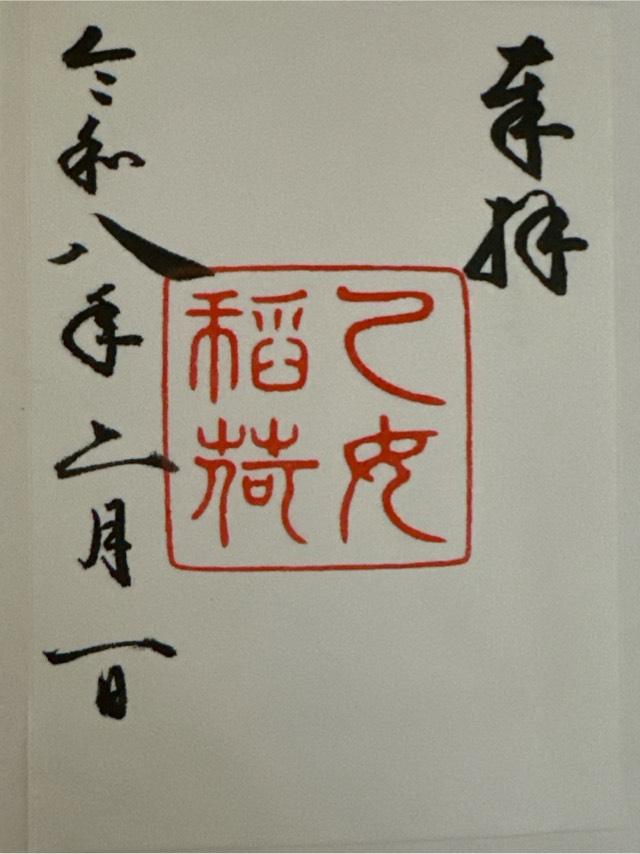 奉拝
乙女
稲荷
令和八年二月一日